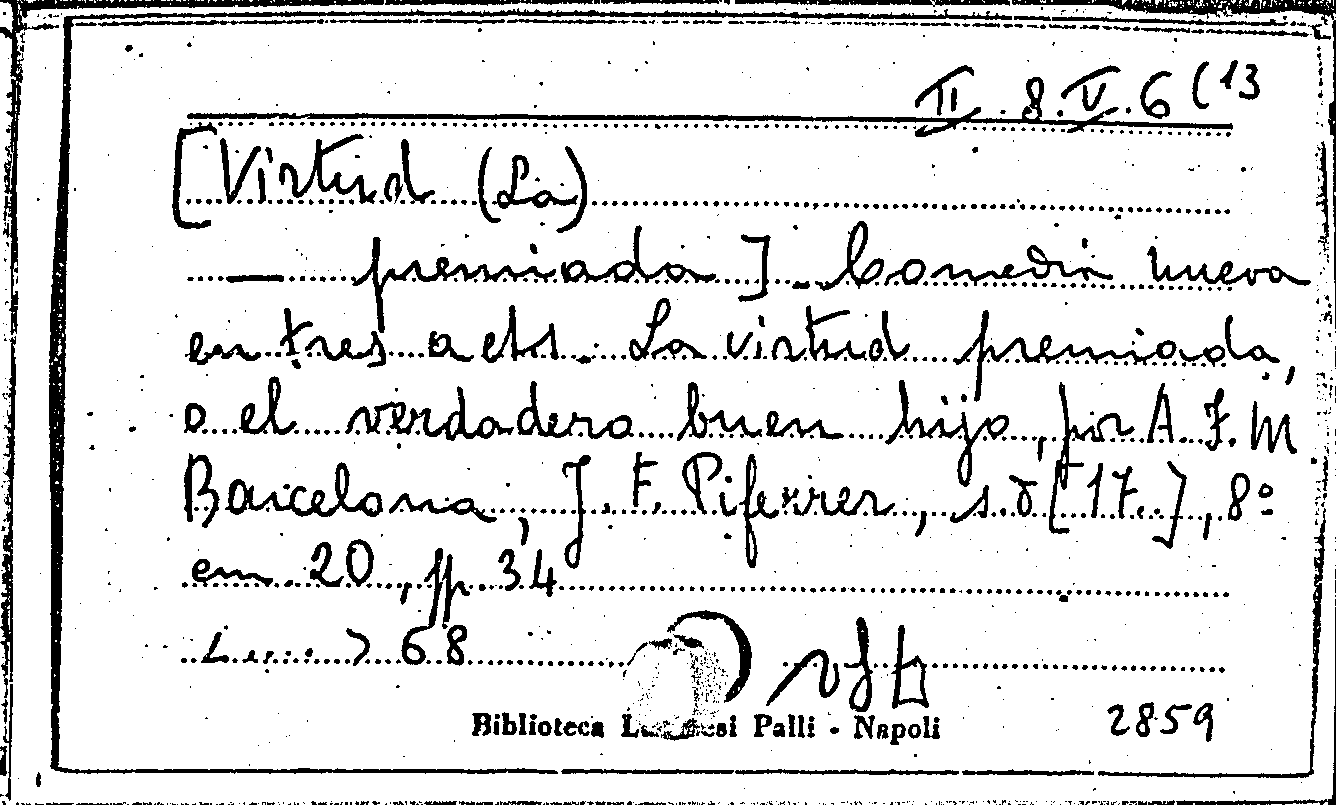 II. 8. V. 6 (13
[Virtud (La)
— premiada]. Comedia nueva
en tres acts. La virtud premiada,
o el verdadero buen hijo, por A. F. M
Barcelona, J. F. Piferrer, s.d [17..], 8º
cm. 20, pp. 34
L.... > 68
Biblioteca Palli - Napoli
2859